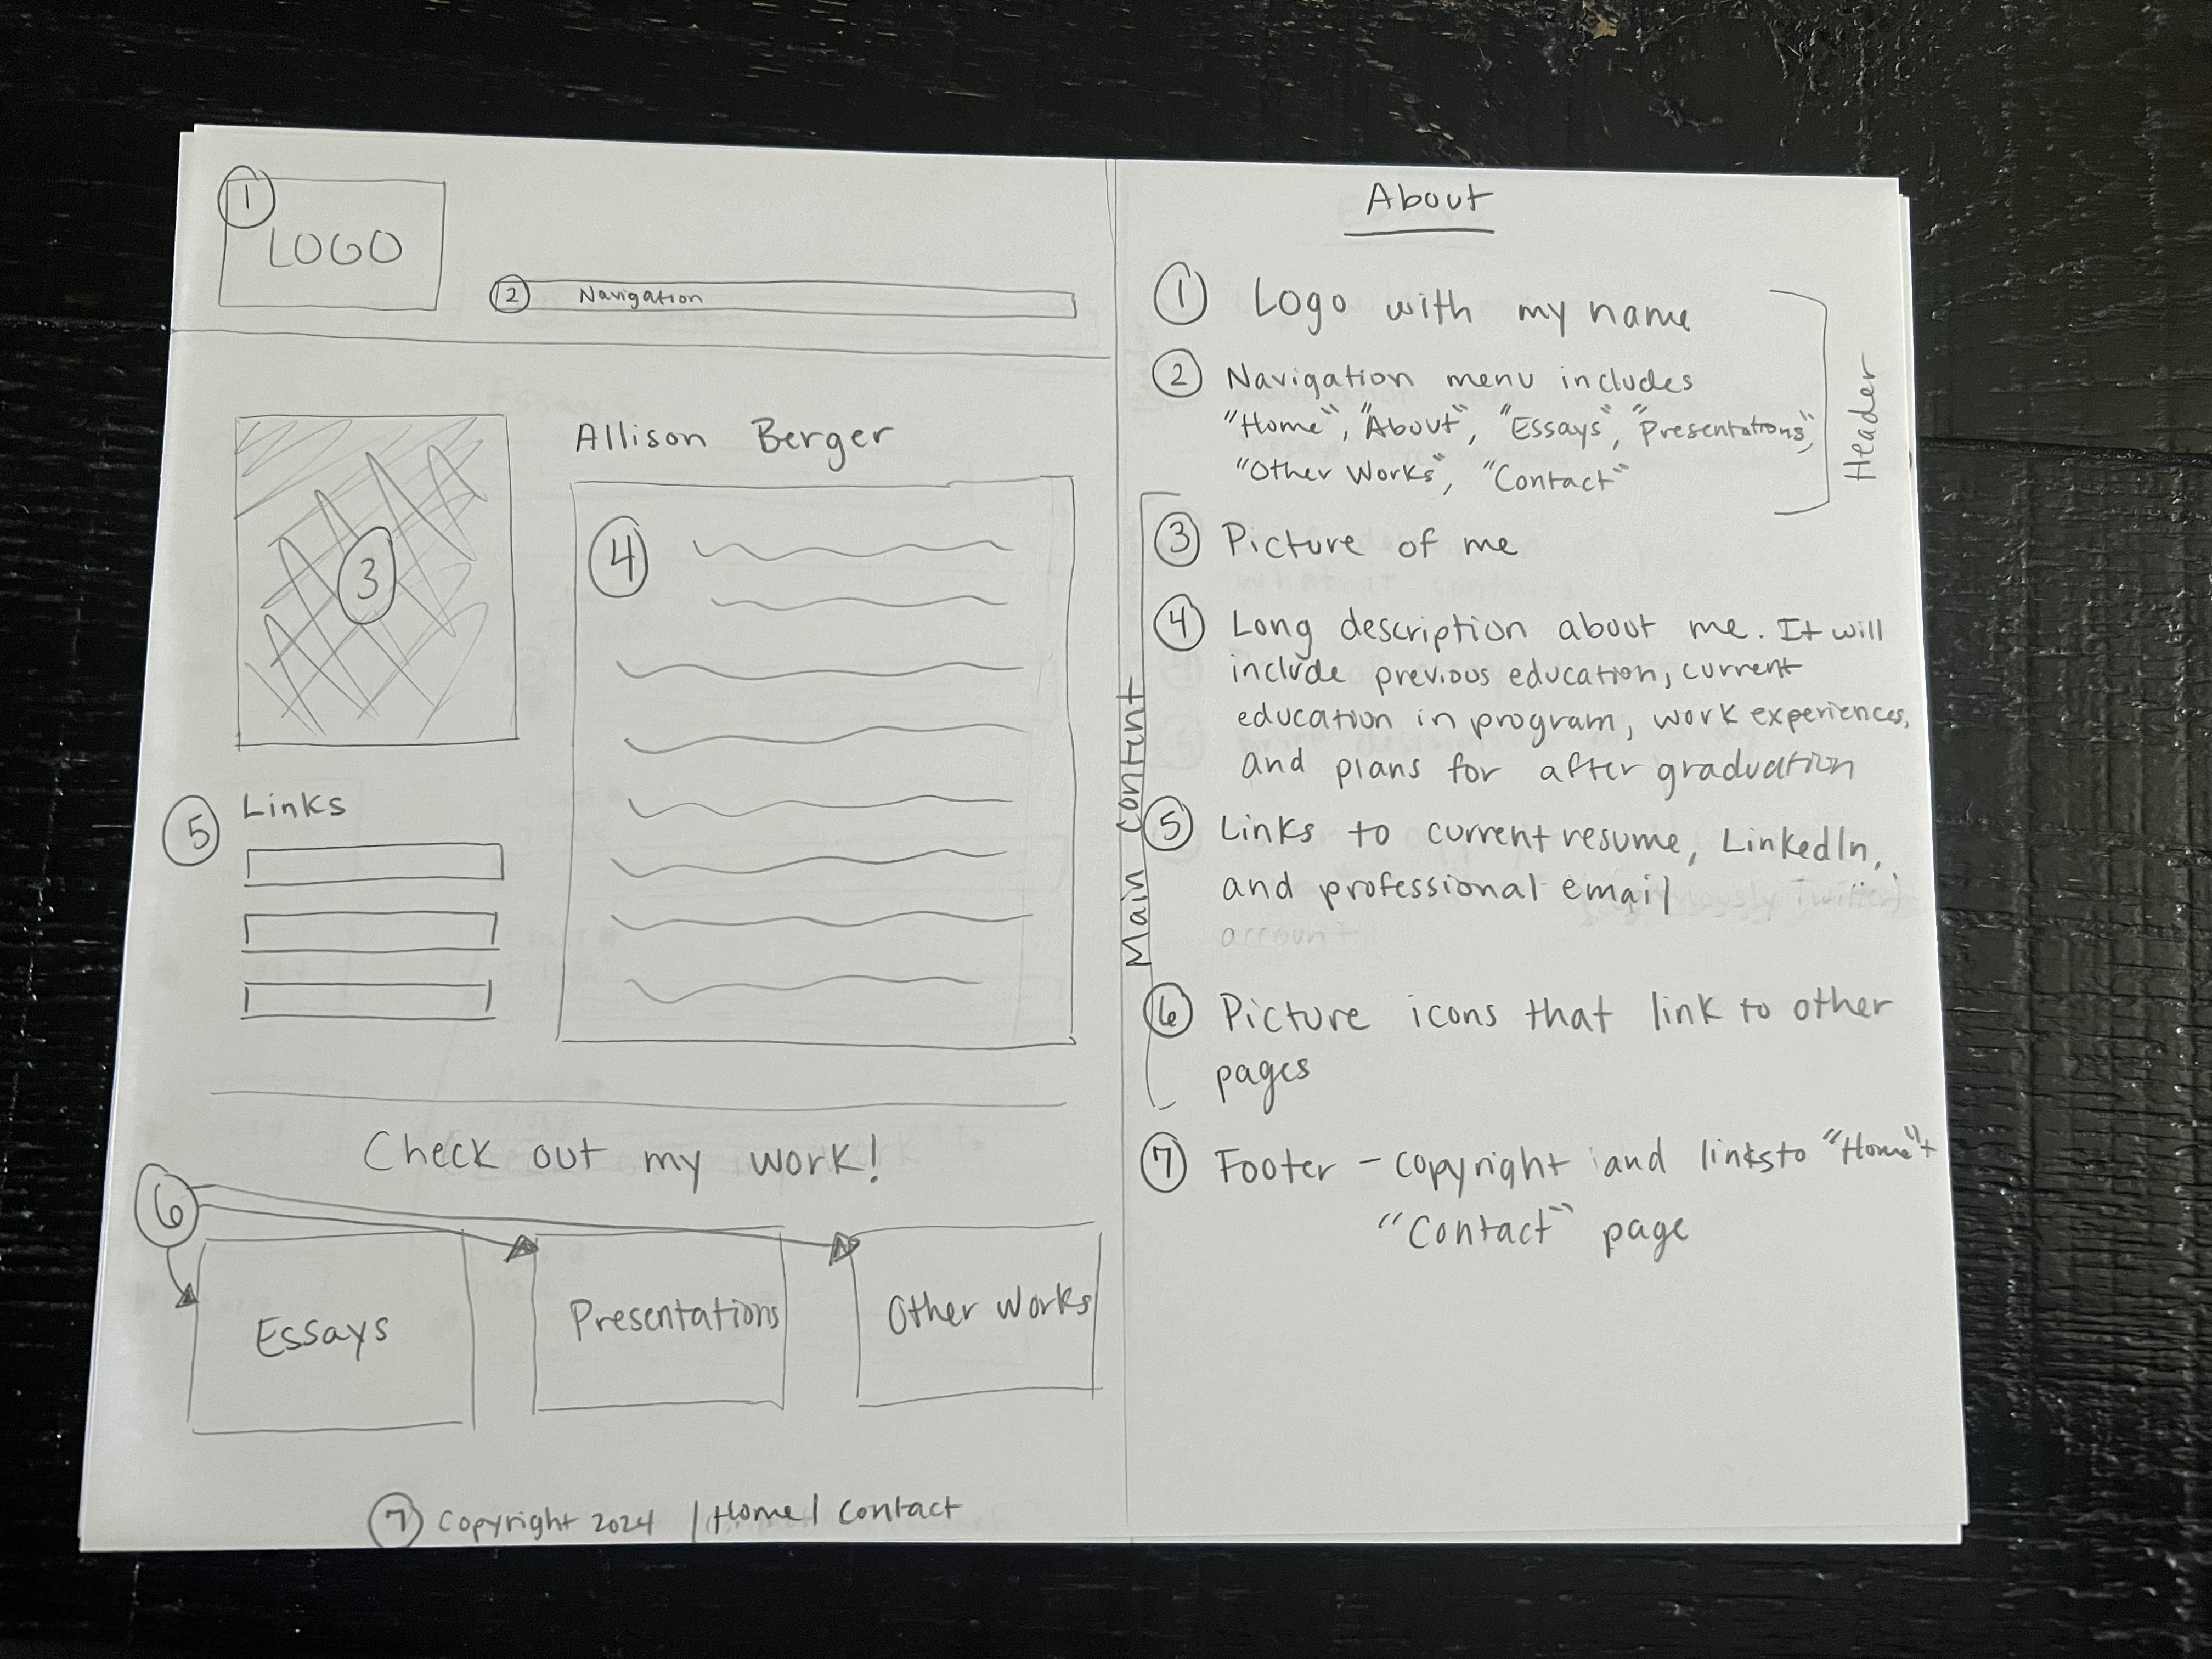 1
LOGO
2 Navigation
Allison Berger
3
4
5 Links
Check out my work!
6
Essays
Presentations
Other Works
7 Copyright 2024 | Home | Contact
About
1 Logo with my name
2 Navigation menu includes
"Home", "About", "Essays", "Presentations",
"Other Works", "Contact"
Header
3 Picture of me
4 Long description about me. It will
include previous education, current
education in program, work experiences,
and plans for after graduation
5 Links to current resume, LinkedIn,
and professional email
6 Picture icons that link to other
pages
Main Content
7 Footer - copyright and links to "Home" +
"Contact" page